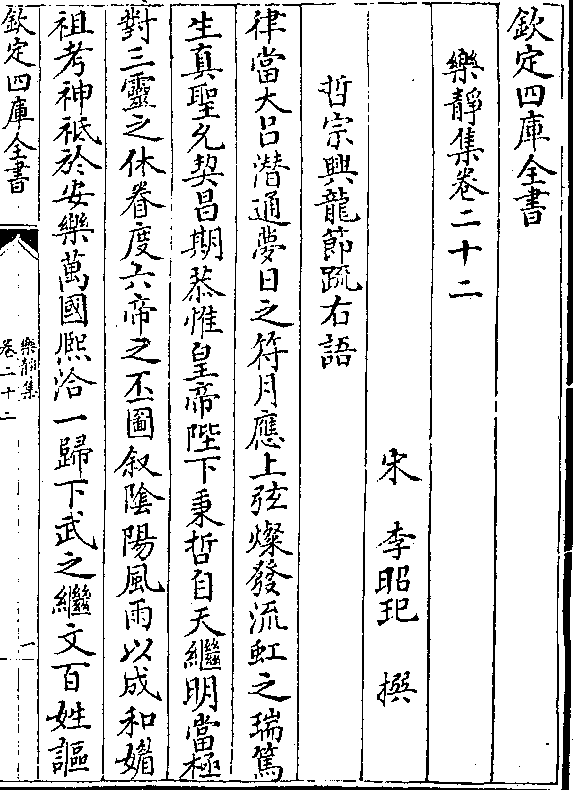 欽定四庫全書
樂靜集卷二十二
宋 李昭玘 撰
哲宗興龍節疏右語
律當大吕潛通夢日之符月應上弦燦發流虹之瑞篤
生真聖允契昌期恭惟皇帝陛下秉哲自天繼明當極
對三靈之休眷度六帝之丕圖叙陰陽風雨以成和媚
祖考神祇於安樂萬國熙洽一歸下武之繼文百姓謳
欽定四庫全書
樂靜集
卷二十二
一